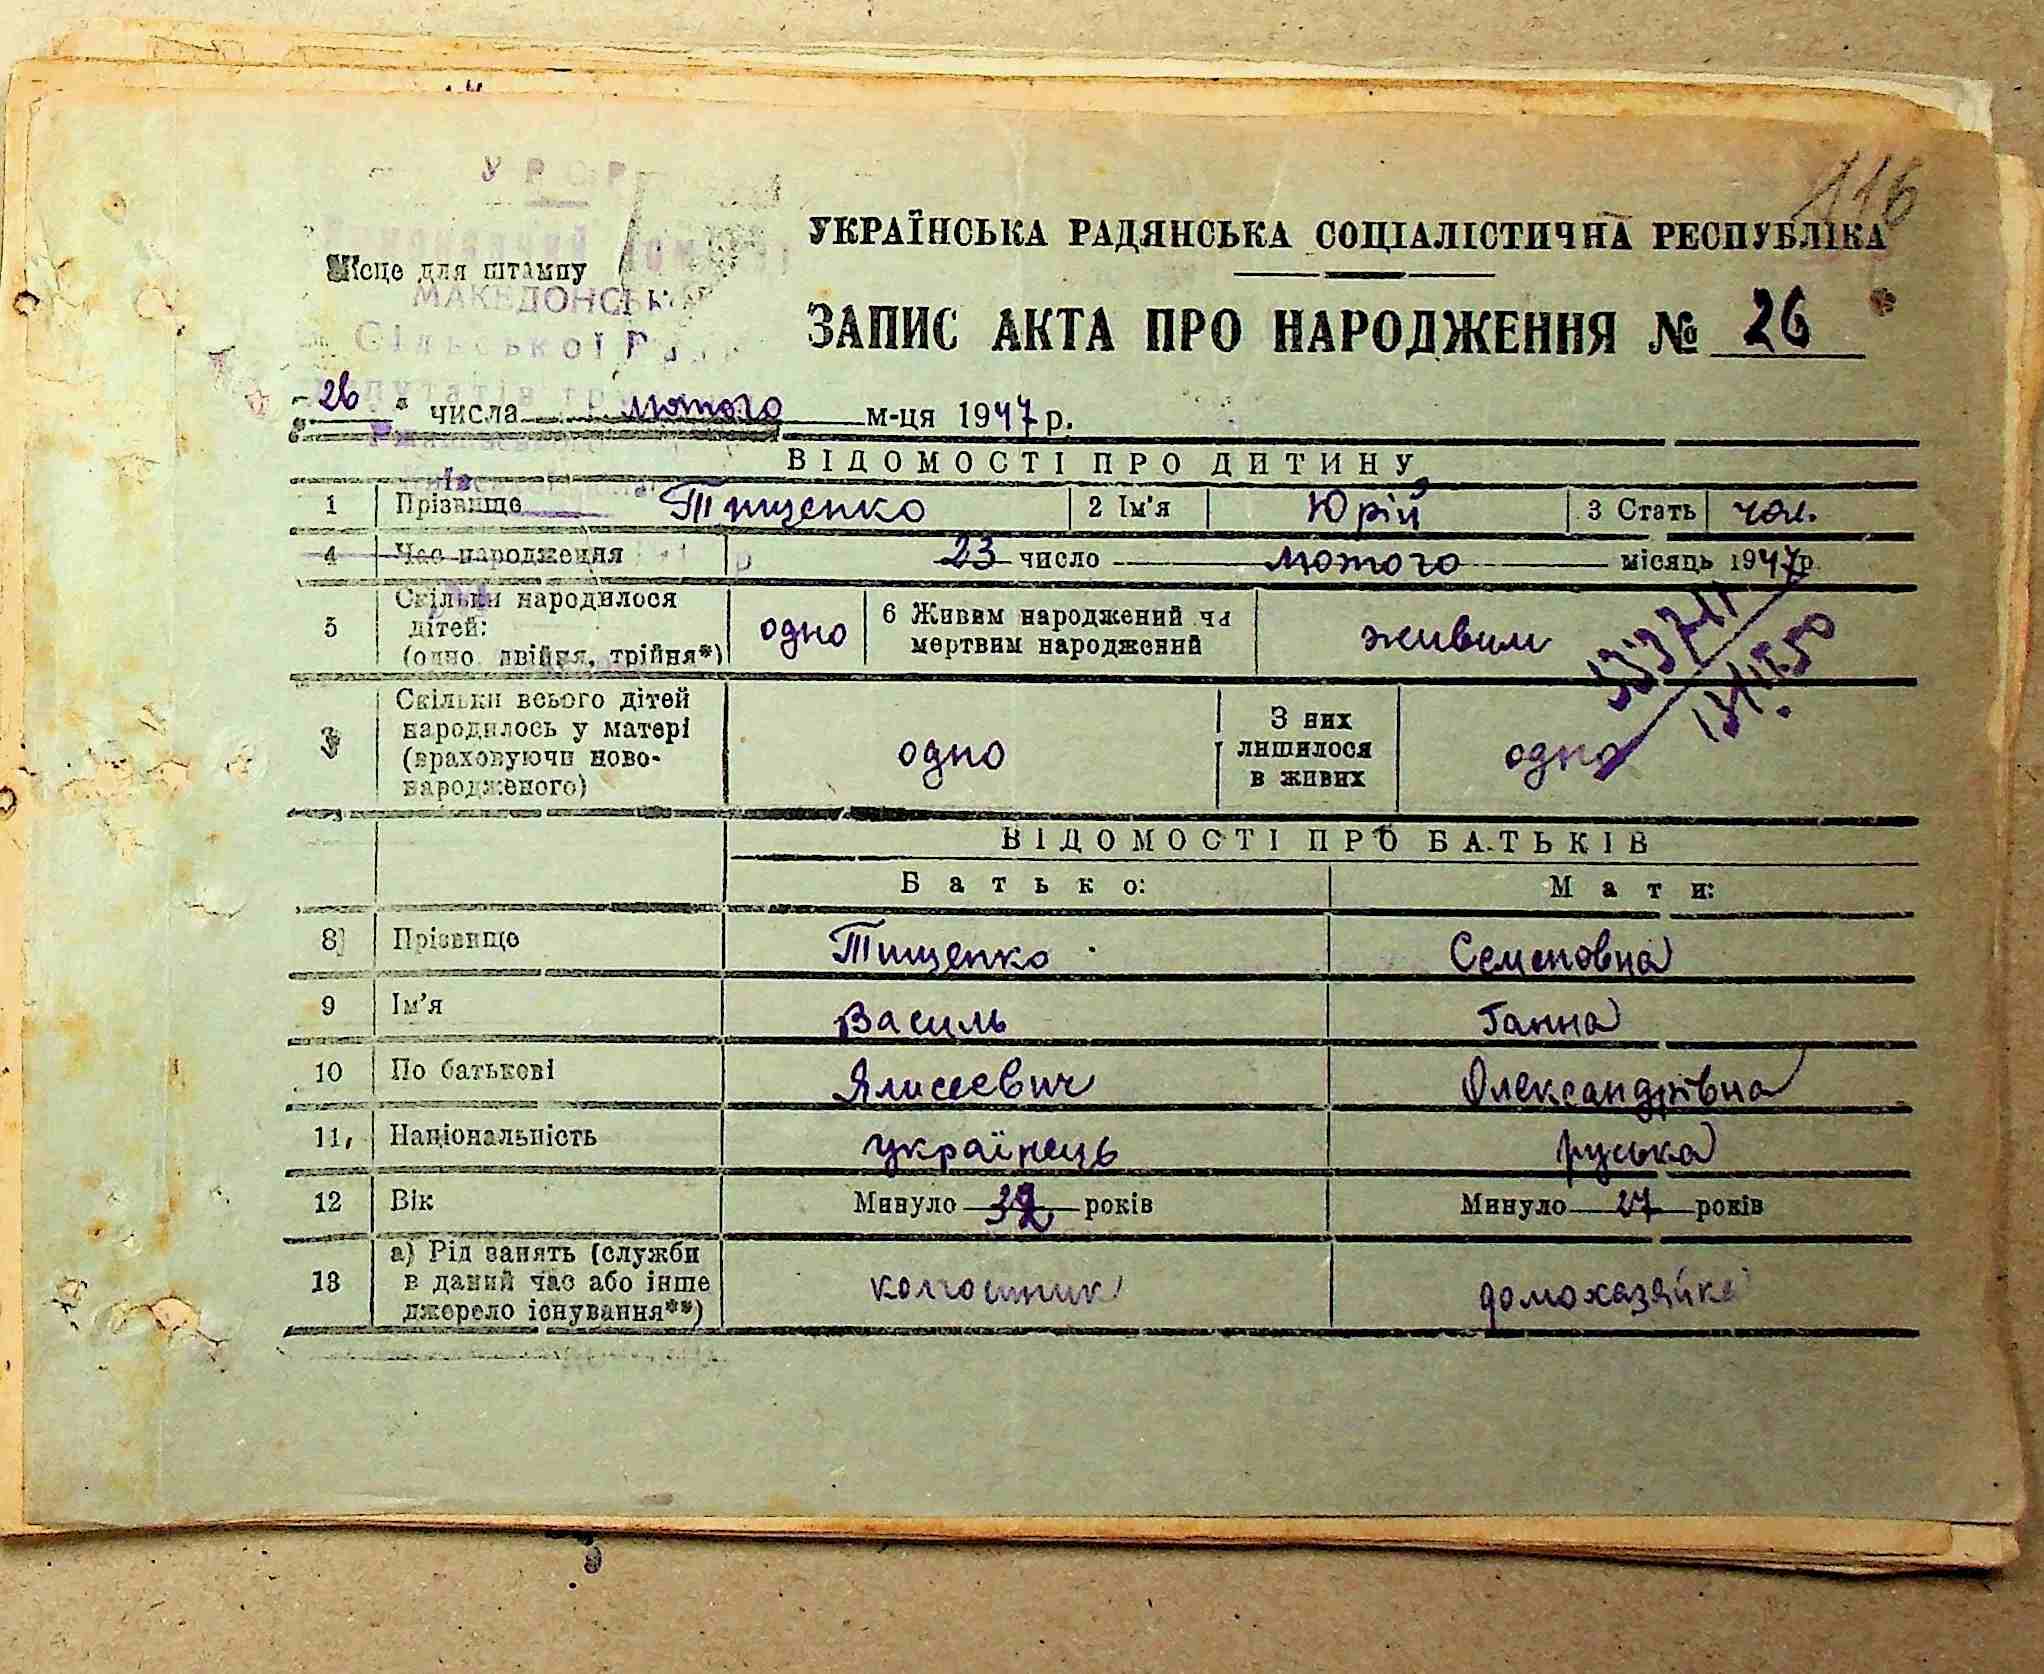 116
УРСР
УКРАЇНСЬКА РАДЯНСЬКА СОЦІАЛІСТИЧНА РЕСПУБЛІКА
Місце для штампу
МАКЕДОНСЬК
Сільської Р
ЗАПИС АКТА ПРО НАРОДЖЕННЯ № 26
26 " числа лютого м-ця 1947 р.
ВІДОМОСТІ ПРО ДИТИНУ
1 Прізвище Тищенко 2 Ім'я Юрій 3 Стать чол.
4 Час народження 23 число лютого місяць 1947 р.
5 Скільки народилося дітей: (одно, двійня, трійня*) одно 6 Живим народжений чи мертвим народжений живим
Скільки всього дітей народилось у матері (враховуючи новонародженого) одно З них лишилося в живих одно
ВІДОМОСТІ ПРО БАТЬКІВ
Батько: Мати:
8 Прізвище Тищенко Семеновна
9 Ім'я Василь Ганна
10 По батькові Ялисеевич Олександрівна
11 Національність українець руська
12 Вік Минуло років Минуло 27 років
13 а) Рід занять (служби в даний час або інше джерело існування**) колгошник домохазяйка